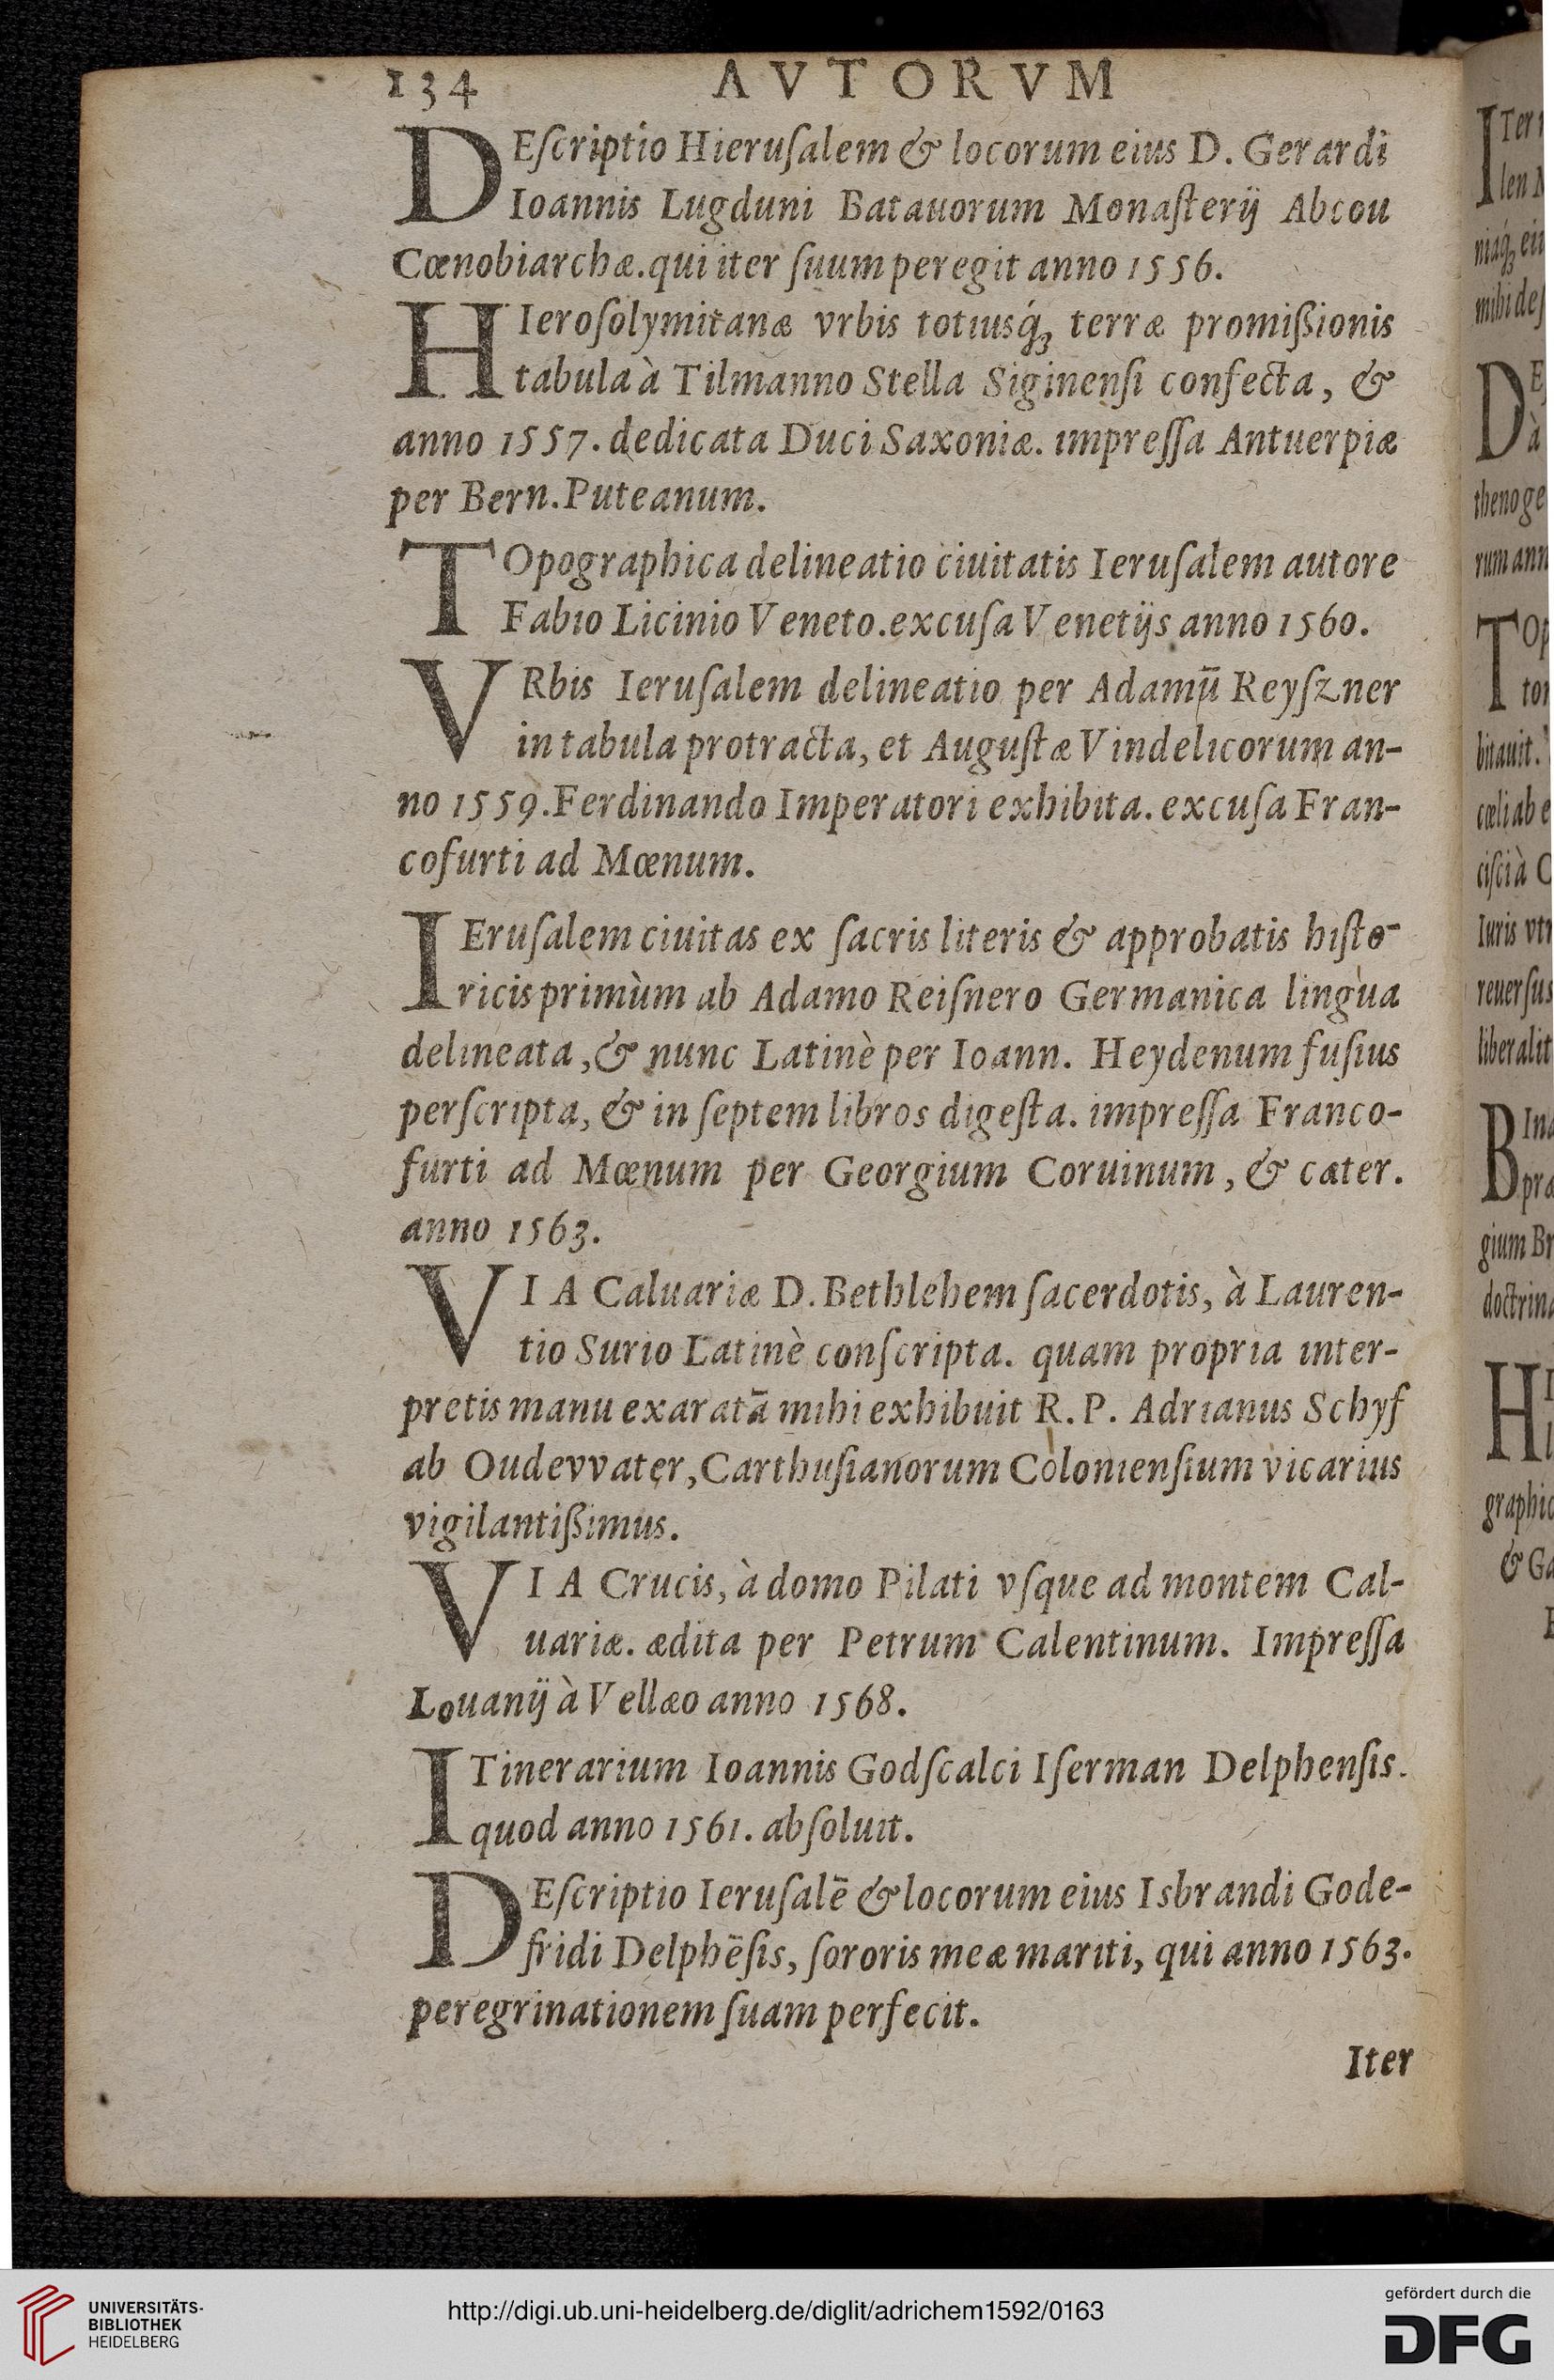 134 AVTORVM
DEſcriptio Hieruſalem & locorum eius D. Gerardi
Ioannis Lugduni Batauorum Monaſterij Abcou
Cœnobiarchæ. qui iter ſuum peregit anno 1556.
HIeroſolymitanæ vrbis totiusq́ꝫ terræ promißionis
tabula à Tilmanno Stella Siginenſi confecta, &
anno 1557. dedicata Duci Saxoniæ. impreſſa Antuerpiæ
per Bern. Puteanum.
TOpographica delineatio ciuitatis Ieruſalem autore
Fabio Licinio Veneto. excuſa Venetijs anno 1560.
VRbis Ieruſalem delineatio per Adamū Reyſzner
in tabula protracta, et Auguſtæ Vindelicorum an-
no 1559. Ferdinando Imperatori exhibita. excuſa Fran-
cofurti ad Mœnum.
IEruſalem ciuitas ex ſacris literis & approbatis hiſto-
ricis primùm ab Adamo Reiſnero Germanica lingua
delineata, & nunc Latinè per Ioann. Heydenum fuſius
perſcripta, & in ſeptem libros digeſta. impreſſa Franco-
furti ad Mœnum per Georgium Coruinum, & cæter.
anno 1563.
VIA Caluariæ D. Bethlehem ſacerdotis, à Lauren-
tio Surio Latinè conſcripta. quam propria inter-
pretis manu exaratā mihi exhibuit R. P. Adrianus Schyf
ab Oudevvater, Carthuſianorum Colonienſium vicarius
vigilantißimus.
VIA Crucis, à domo Pilati vſque ad montem Cal-
uariæ. ædita per Petrum Calentinum. Impreſſa
Louanij à Vellæo anno 1568.
ITinerarium Ioannis Godſcalci Iſerman Delphenſis.
quod anno 1561. abſoluit.
DEſcriptio Ieruſalē & locorum eius Isbrandi Gode-
fridi Delphēſis, ſororis meæ mariti, qui anno 1563.
peregrinationem ſuam perfecit.
Iter
UNIVERSITÄTS-
BIBLIOTHEK
HEIDELBERG
http://digi.ub.uni-heidelberg.de/diglit/adrichem1592/0163
gefördert durch die
DFG